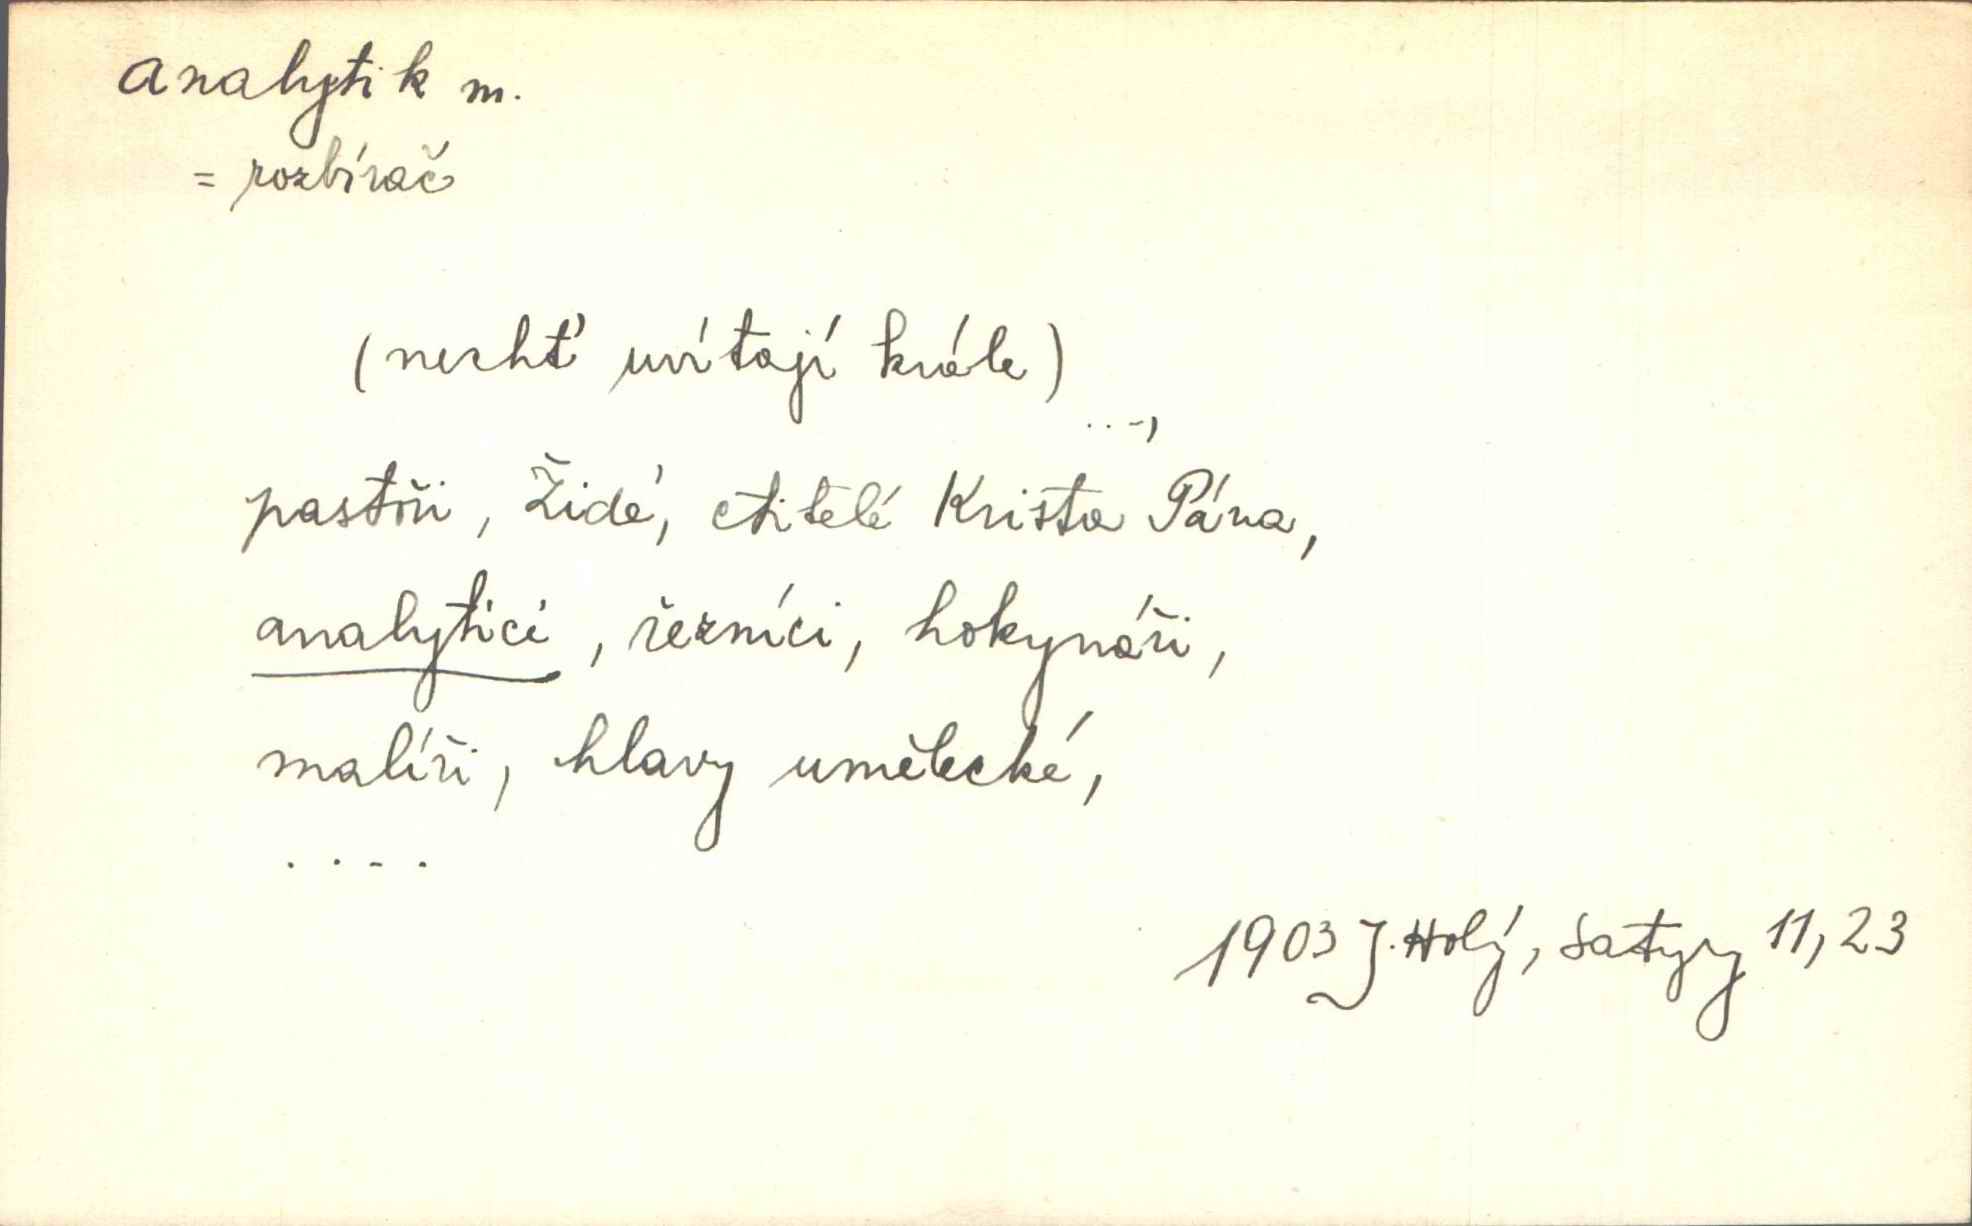 analytik m.
= rozbírač
(nechť uvítají krále)
...,
pastýři, Židé, ctitelé Krista Pána,
analytici, řezníci, hokynáři,
malíři, hlavy umělecké,
....
1903 J. Holý, Satyry 11, 23